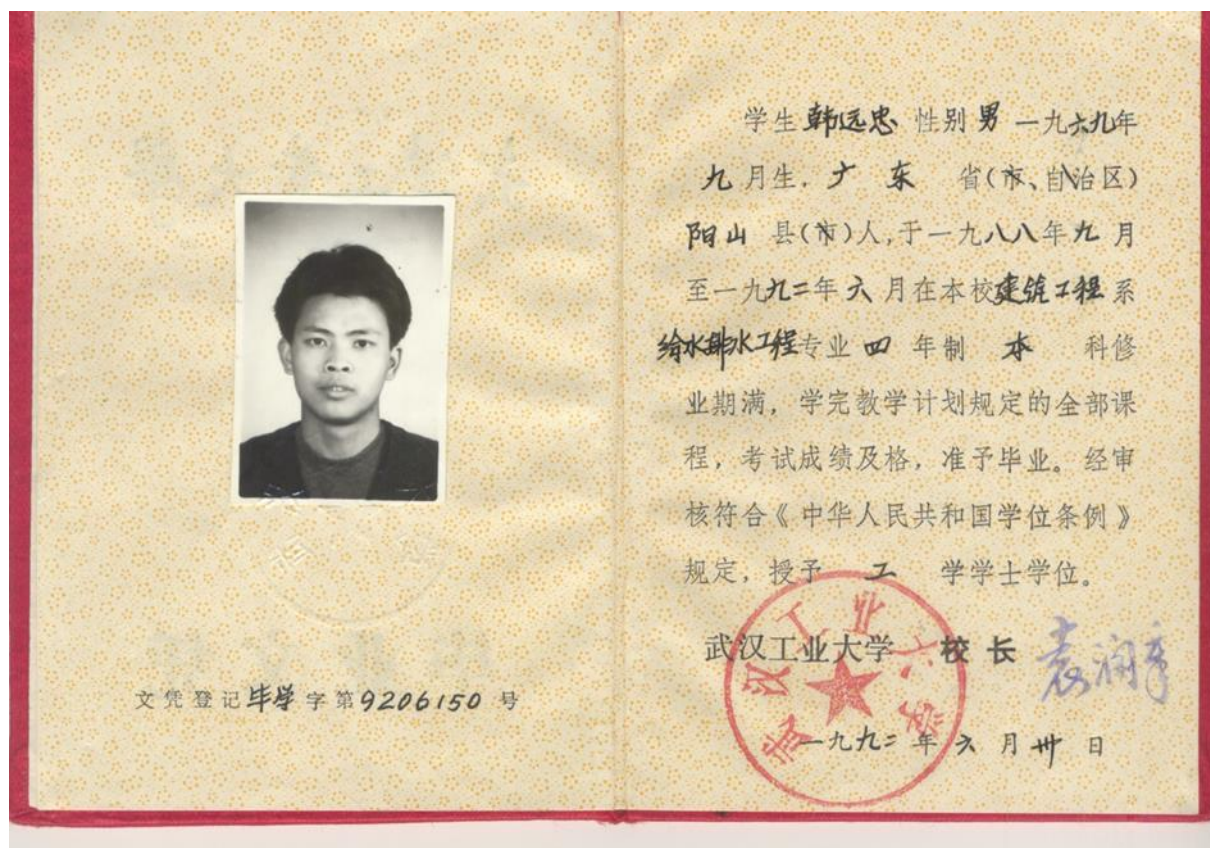 文凭登记毕学字第9206150号
学生韩远忠 性别男 一九六九年
九月生,广东 省(市、自治区)
阳山 县(市)人,于一九八八年九月
至一九九二年六月在本校建筑工程系
给水排水工程专业 四 年制 本 科修
业期满,学完教学计划规定的全部课
程,考试成绩及格,准予毕业。经审
核符合《中华人民共和国学位条例》
规定,授予 工 学学士学位。
武汉工业大学 校长 袁润章
武汉工业大学
一九九二年六月卅日